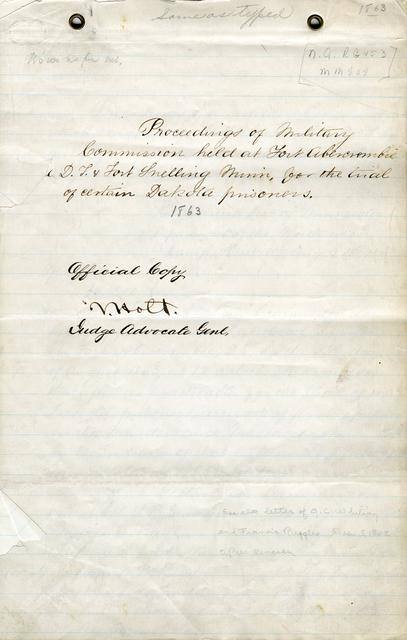 Same as typed
1863
[N.A. RG 153
MM
Proceedings of Military
Commission held at Fort Abercrombie
D. T. & Fort Snelling Minn, for the trial
of certain Dakota prisoners.
1863
Official Copy
J. Holt.
Judge Advocate Genl.
See also letter of A.C.
and Francis
after